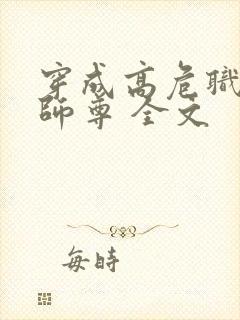 穿成高危職
師尊 全文
每時